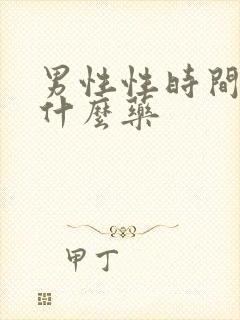 男性性時間
什麼藥
甲丁